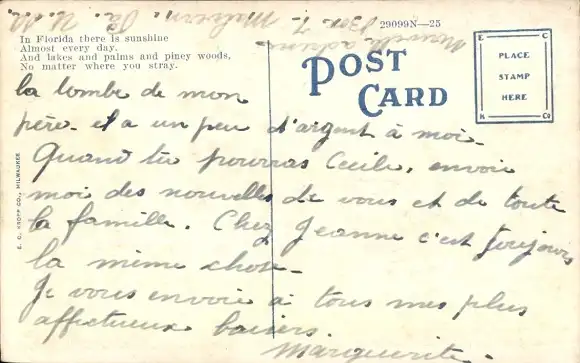 Nouvelle adresse
Box 7. Malvern. Pa. U.S.A.
29099N—25
In Florida there is sunshine
Almost every day.
And lakes and palms and piney woods,
No matter where you stray.
POST
CARD
E C
PLACE
STAMP
HERE
K Co
E. C. KROPP CO., MILWAUKEE
la tombe de mon
père. il a un peu d'argent à moi.
Quand tu pourras Cecile, envoie
moi des nouvelles de vous et de toute
la famille. Chez Jeanne c'est toujours
la même chose.
Je vous envoie à tous mes plus
affectueux baisers.
Marguerite.